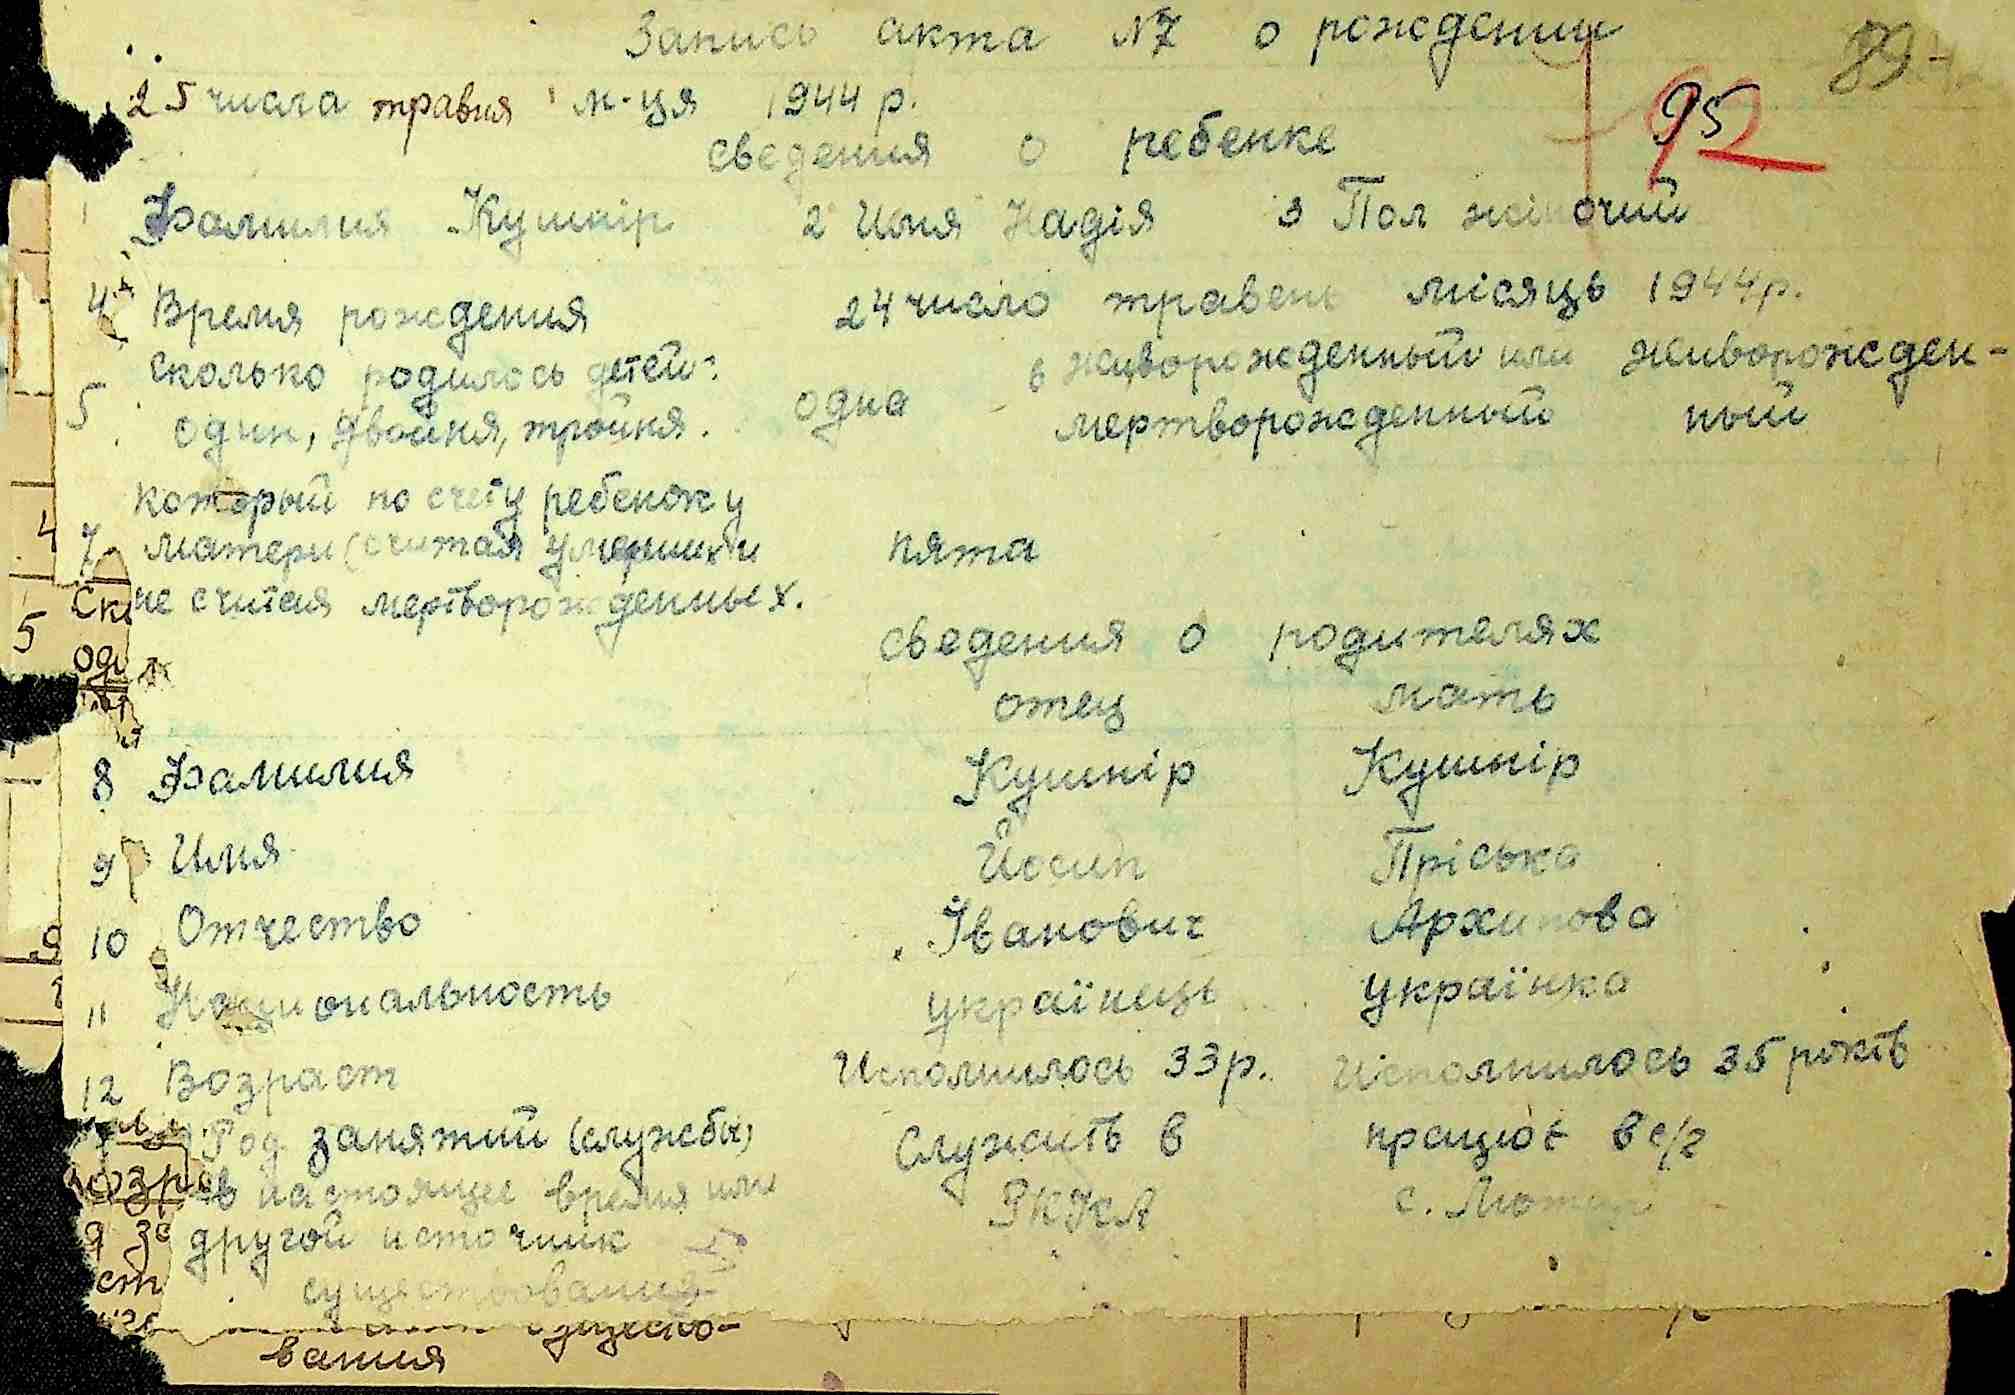 Запись акта №7 о рождении
89
25 числа травня м-ця 1944 р.
95
сведения о ребенке
Фамилия Кушнір 2 Имя Надія 3 Пол жіночий
4 Время рождения 24 число травень місяць 1944р.
5 сколько родилось детей: один, двойня, тройня. одна
6 живорожденный или мертворожденный живорожден-
ный
который по счету ребенок у
7 матери (считая умерших и пята
не считая мертворожденных.
сведения о родителях
отец мать
8 Фамилия Кушнір Кушнір
9 Имя Йосип Пріська
10 Отчество Іванович Архипова
11 Национальность українець українка
12 Возраст Исполнилось 33р. Исполнилось 35 років
Род занятий (службы) Служить в працює в с/г
в настоящее время или РККА с. Лютар
другой источник
существования
вания